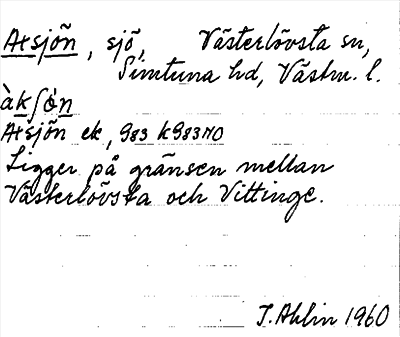 Axsjön, sjö, Västerlövsta sn,
Simtuna hd, Västm. l.
àkʃön
Axsjön ek, 983 k 983 NO
Ligger på gränsen mellan
Västerlövsta och Vittinge.
T. Ahlin 1960